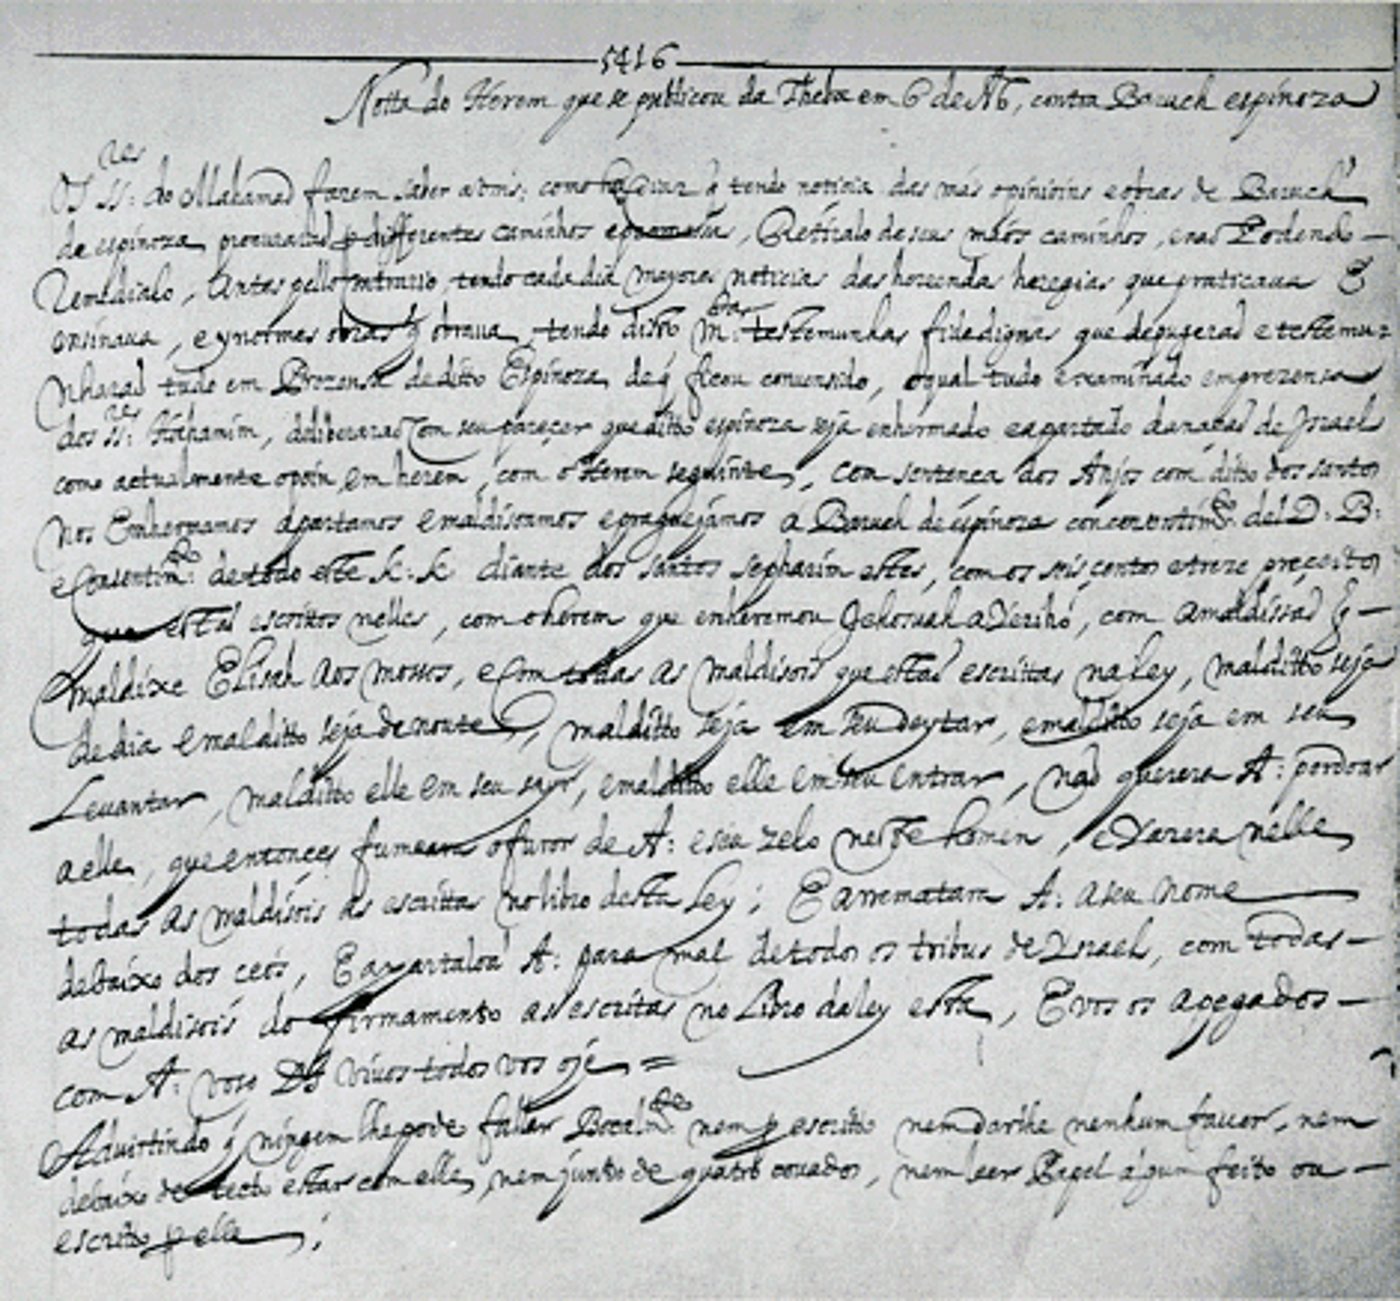 5416
Notta do Herem que se publicou da Theba em 6 de Ab, contra Baruch espinoza
Os SSres: do Mahamad fazem saber a vms; como ha diaz q tendo noticia das más opinioins e obras de Baruch
de espinoza procurarad p differentes caminhos e promesas, Retiralo de seus máos caminhos, e nad Podendo
Remedialo, Antes pello contrario, tendo cada dia mayores noticias das horrendas heregias que praticava E
ensinava, e ynormes obras q obrava, tendo disto Mtas: testemunhas fidedignas que depugerad e testemu=
nharad tudo em Prezensa de ditto Espinoza, de q ficou convensido, o qual tudo examinado em prezensa
dos SSres: Hahamim, deliberarad com seu parecer que ditto espinoza seja enhermado e apartado da nacad de Israel
como actualmente o poin em herem, com o Herem seguinte, Com sentenca dos Anjos com ditto dos santos
Nos Enhermamos apartamos e maldisoamos e praguejámos a Baruch de espinoza com consentimto. del D: B:
e Consentimto: de todo este K: K: diante dos santos sepharim estes, com os seis centos e treze preceitos
que estad escrittos nelles, com o herem que enheremou Jehosuah a Yeriho, com a maldissad q
maldixe Elisah aos mossos, e Com todas as maldisois que estad escrittas na ley, malditto seja
de dia e malditto seja de noute, malditto seja em seu deytar, e malditto seja em seu
Levantar, malditto elle em seu sayr, e malditto elle em seu entrar, nad querera A: pordoar
a elle, que entonces fumeara o furor de A: e seu zelo neste homen, e Yazera nelle
todas as maldisois as escrittas no libro desta Ley; E arrematara A: a seu nome
debaixo dos ceos, E apartaloa A: para mal de todos os tribus de Ysrael, com todas
as maldisois do firmamento as escritas no Libro da ley esta, E vos os apegados
com A: voso Ds vivos todos vos oje =
Advirtindo q ningem lhe pode fallar Bocalmte: nem p escritto nem darlhe nenhum favor, nem
debaixo de tecto estar com elle, nem junto de quatro covados, nem leer Papel algum feito ou
escritto p elle;